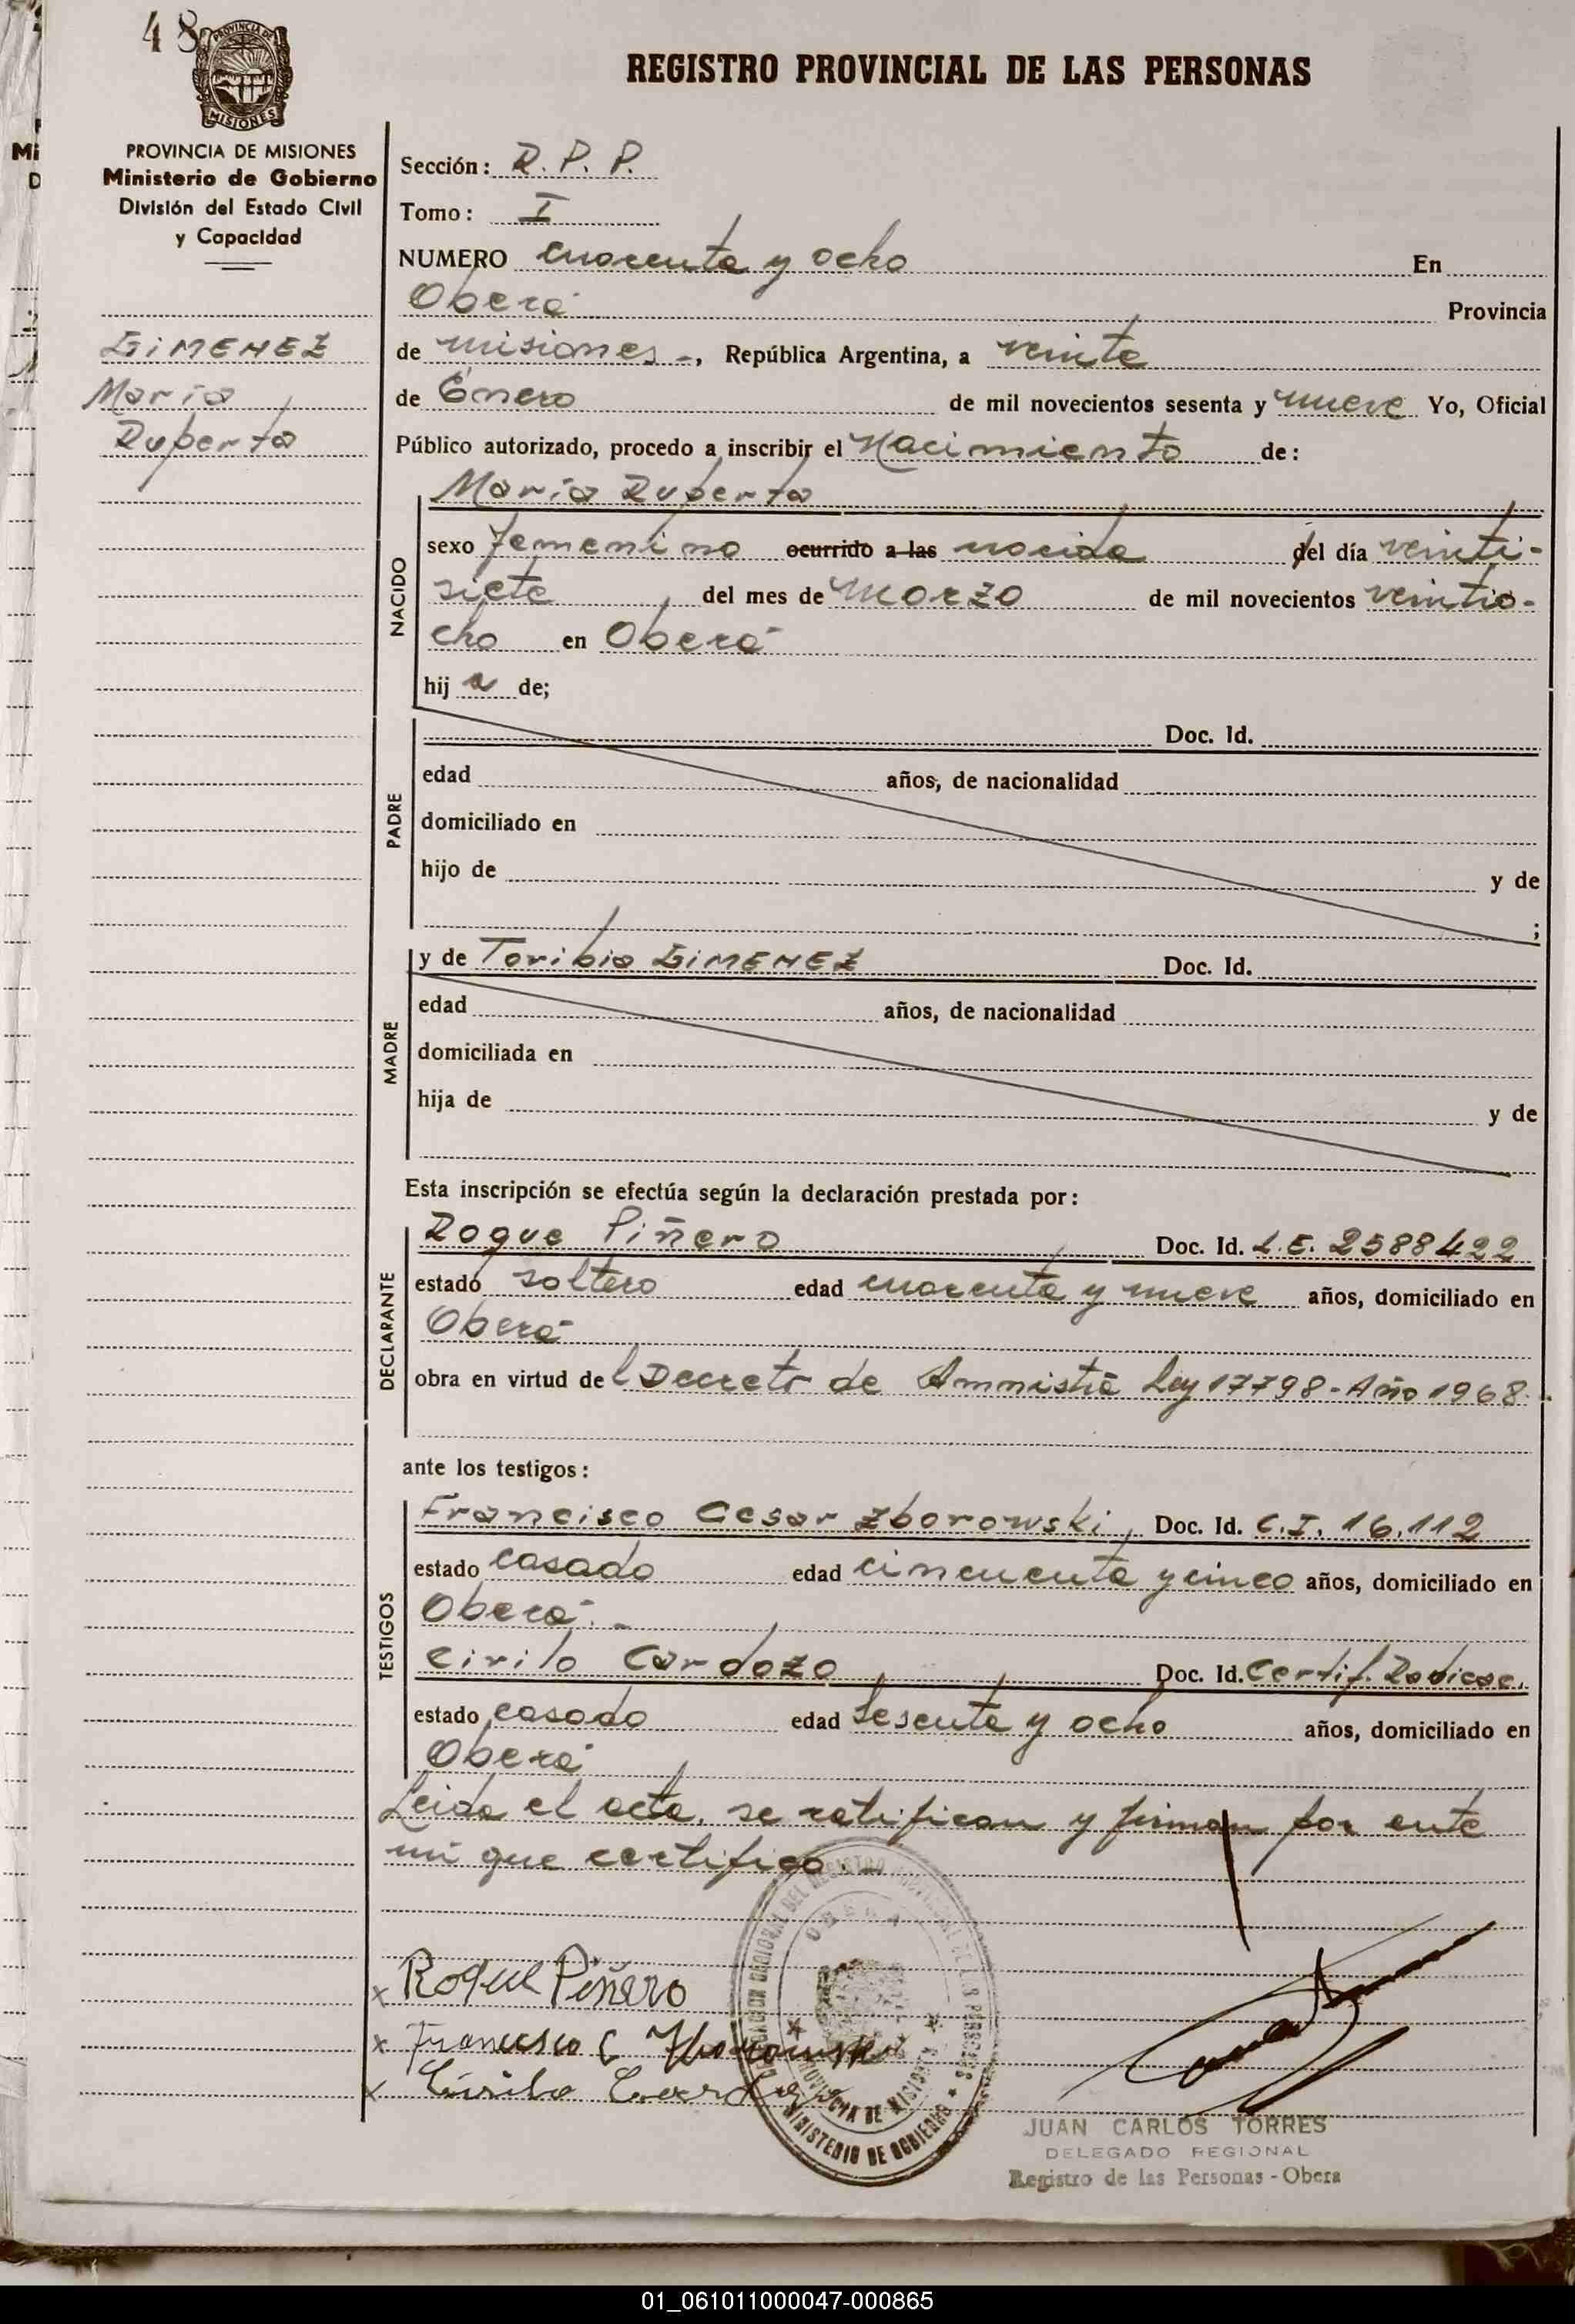 48
PROVINCIA DE
MISIONES
REGISTRO PROVINCIAL DE LAS PERSONAS
PROVINCIA DE MISIONES
Ministerio de Gobierno
División del Estado Civil
y Capacidad
GIMENEZ
Maria
Ruperta
Sección: R. P. P.
Tomo: I
NUMERO cuarenta y ocho En
Oberá Provincia
de misiones -, República Argentina, a veinte
de Enero de mil novecientos sesenta y nueve Yo, Oficial
Público autorizado, procedo a inscribir el Nacimiento de:
NACIDO
Maria Ruperta
sexo femenino ocurrido a las nacida del día veinti-
siete del mes de Marzo de mil novecientos veintio-
cho en Oberá
hija de;
PADRE
Doc. Id.
edad años, de nacionalidad
domiciliado en
hijo de y de
;
MADRE
y de Toribia GIMENEZ Doc. Id.
edad años, de nacionalidad
domiciliada en
hija de y de
Esta inscripción se efectúa según la declaración prestada por:
DECLARANTE
Roque Piñero Doc. Id. L.E. 2588422
estado soltero edad cuarenta y nueve años, domiciliado en
Oberá
obra en virtud del Decreto de Amnistia Ley 17798 - Año 1968.
ante los testigos:
TESTIGOS
Francisco Cesar Zborowski, Doc. Id. C.I. 16.112
estado casado edad cincuenta y cinco años, domiciliado en
Oberá. -
Cirilo Cardozo Doc. Id. Certif. Radicac.
estado casado edad sesenta y ocho años, domiciliado en
Oberá
Leida el acta, se ratifican y firman por ante
mi que certifico. -
x Roque Piñero
x Francisco C Zborowski
x Cirilo Cardozo
OBERA
PROVINCIA DE MISIONES
MINISTERIO DE GOBIERNO
JUAN CARLOS TORRES
DELEGADO REGIONAL
Registro de las Personas - Obera
01_061011000047-000865